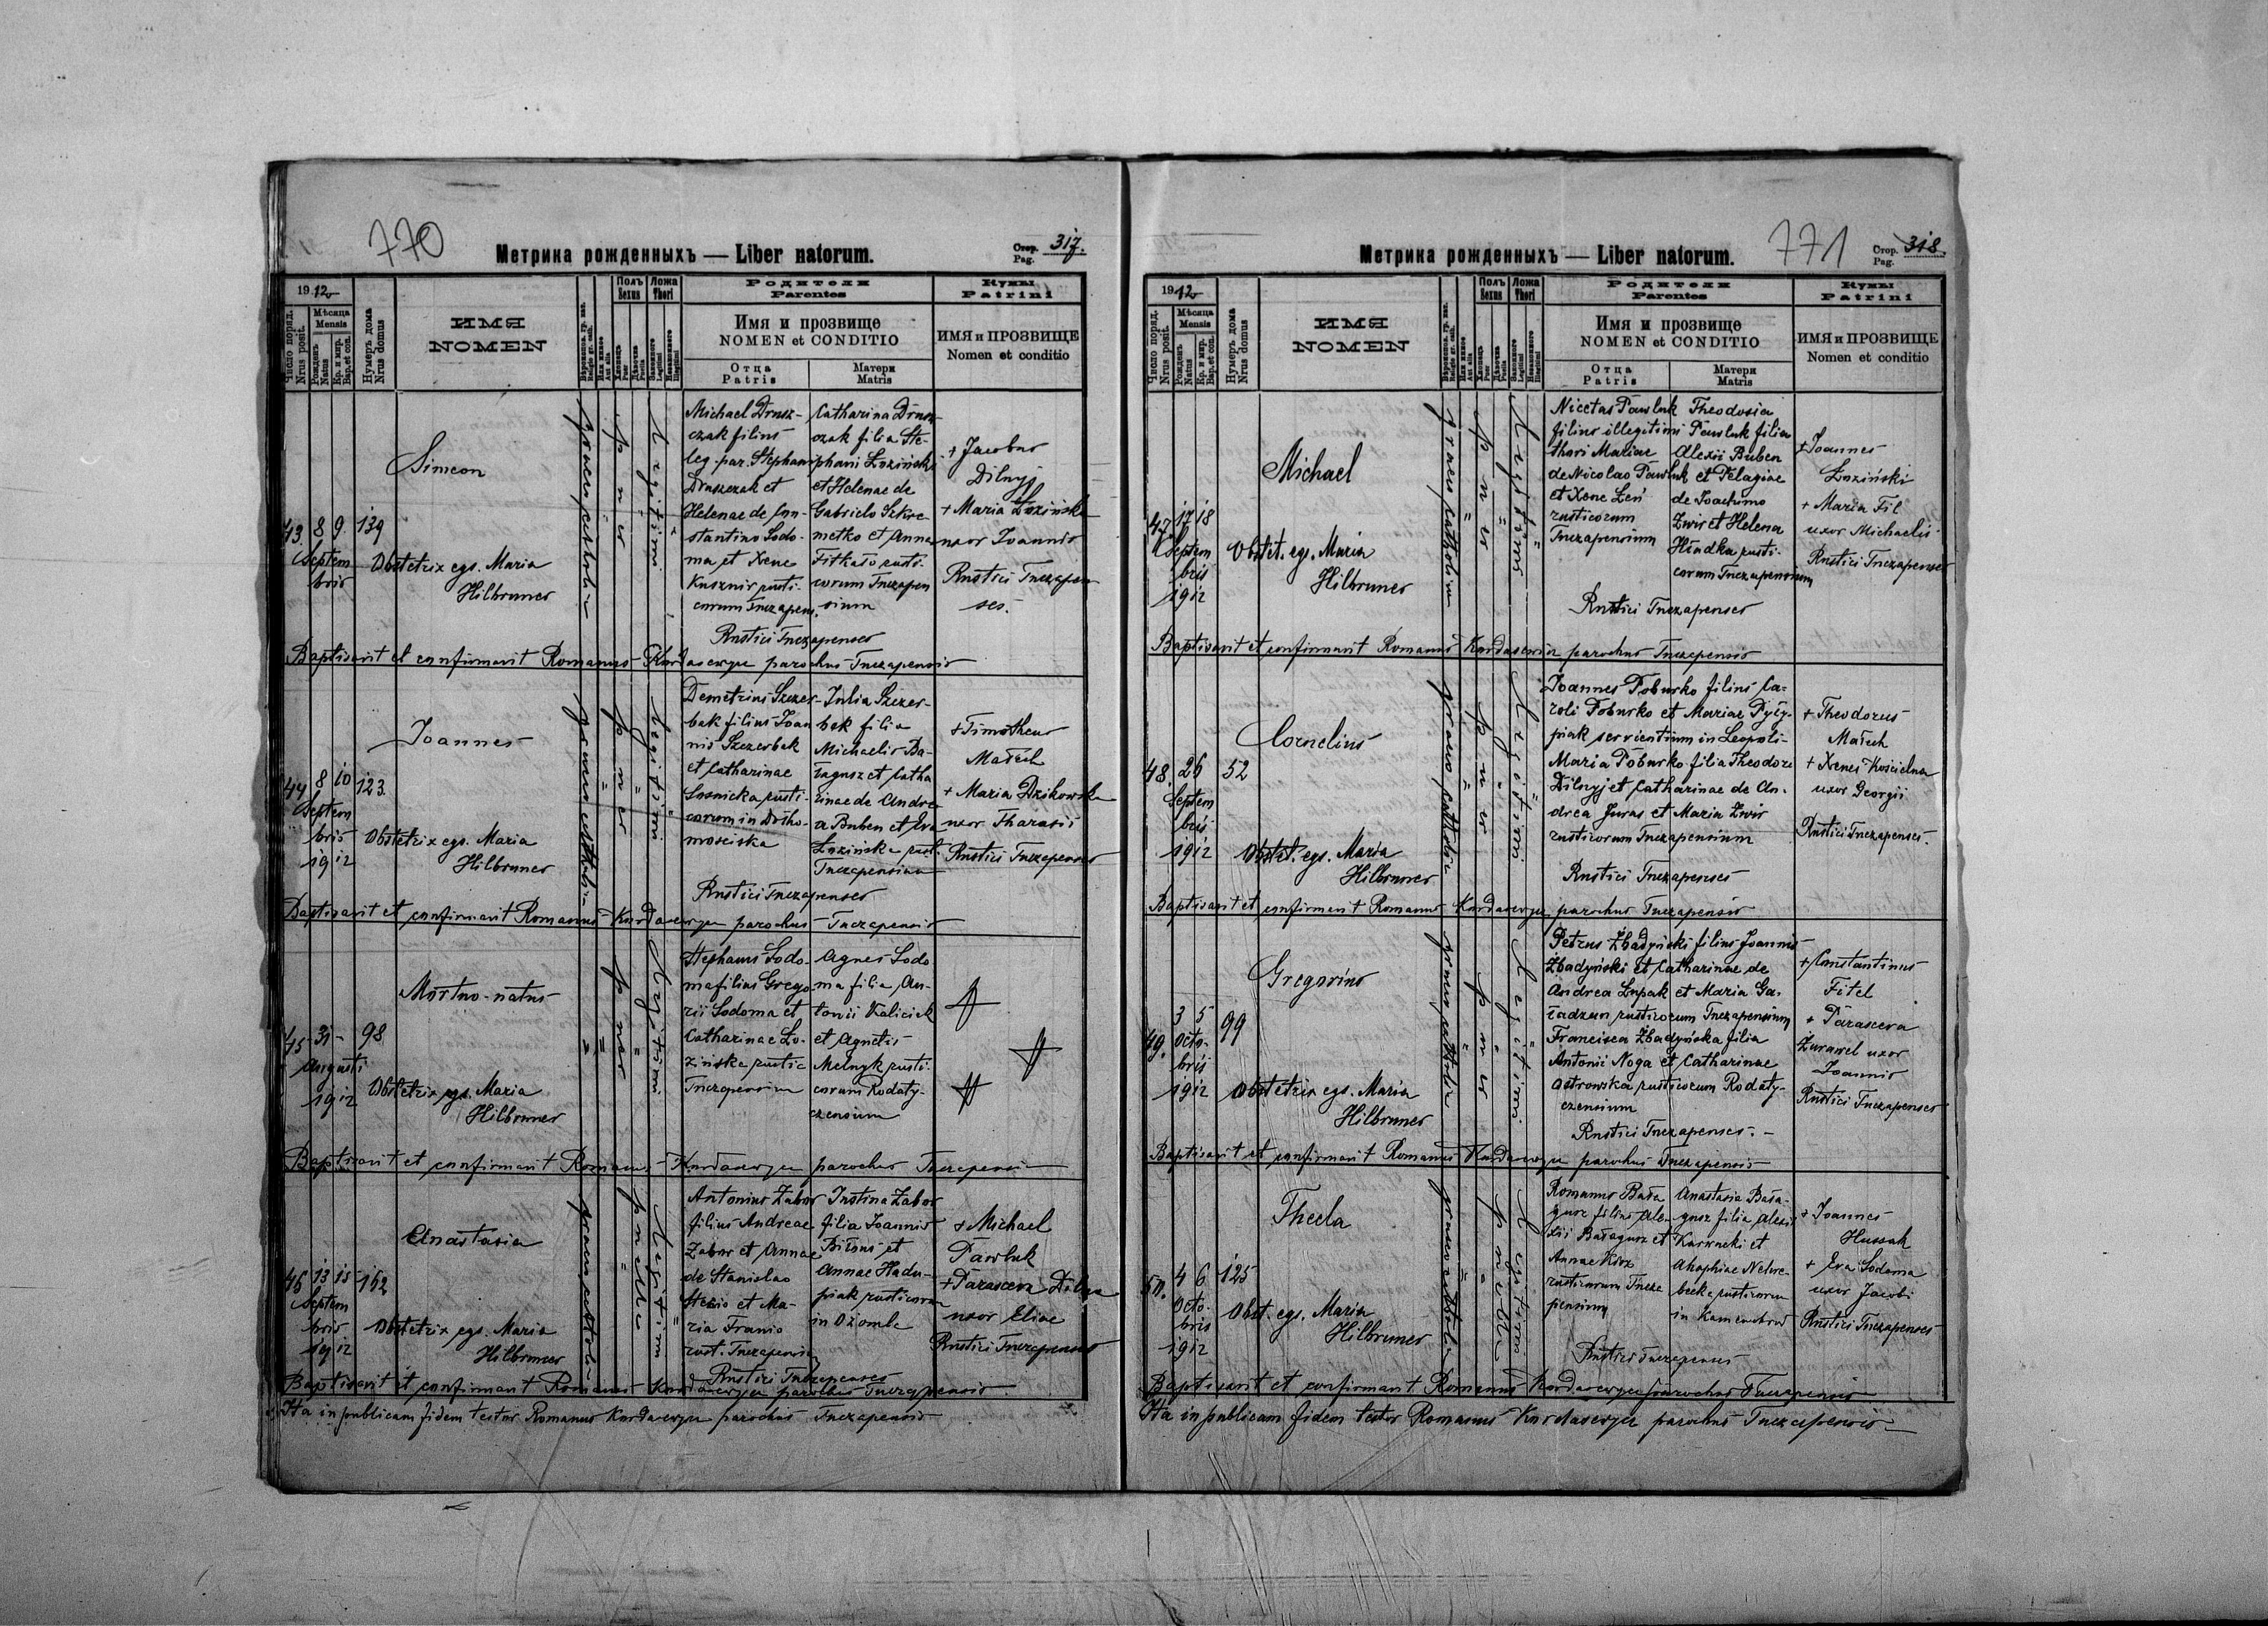 770
Метрика рожденныхъ — Liber natorum.
Стор. Pag. 317.
1912
Число поряд. Nrus posit.
Мѣсяца Mensis
Рожденъ Natus
Кр. и мир. Bap. et con.
Нумеръ дома Nrus domus
ИМЯ
NOMEN
Полъ Sexus
Ложа Thori
Родители
Parentes
Имя и прозвище
NOMEN et CONDITIO
Отца
Patris
Матери
Matris
Кумы
Patrini
ИМЯ и ПРОЗВИЩЕ
Nomen et conditio
43. 8 9 139
Septem
bris
Simeon
Obstetrix egs. Maria
Hilbruner
graeco catholica
puer
legitimi
Michael Drusz-
czak filius
leg. par. Stephani
Druszczak et
Helenae de Con-
stantino Sodo-
ma et Xene
Kusznir rusti-
corum Tuczapens.
Catharina Drusz-
czak filia Ste-
phani Łoziński
et Helenae de
Gabrielo Szkre-
metko et Anna
Fitkało rusti-
corum Tuczapen
sium
Rustici Tuczapenses
+ Jacobus
Dilnyj
+ Maria Łozińska
uxor Joannis
Rustici Tuczapen
ses.
Baptisavit et confirmavit Romanus Kurdasewycz parochus Tuczapensis
44 8 10 123.
Septem
bris
1912
Joannes
Obstetrix egs. Maria
Hilbruner
graeco catholica
puer
legitimi
Demetrius Szczer-
bak filius Joan
nis Szczerbak
et Catharinae
Sosnicka rusti-
corum in Dobro-
mosciska
Julia Szczer-
bak filia
Michaelis Ba-
łagusz et Catha
rinae de Andre-
a Buben et Eva
Łozińska rust.
Tuczapensium
Rustici Tuczapenses
+ Timotheus
Małech
+ Maria Dzikowska
uxor Tharasii
Rustici Tuczapenses
Baptisavit et confirmavit Romanus Kurdasewycz parochus Tuczapensis
45 31 - 98
Augusti
1912
Mortuo-natus
Obstetrix egs. Maria
Hilbruner
puer
legitimi
Stephanus Sodo-
ma filius Grego
rii Sodoma et
Catharinae Ło-
zińska rustic
Tuczapensium
Agnes Sodo
ma filia An-
tonii Kaliciak
et Agnetis
Melnyk rusti-
corum Rodaty-
czensium
Baptisavit et confirmavit Romanus Kurdasewycz parochus Tuczapensis
46 13 15 162
Septem
bris
1912
Anastasia
Obstetrix egs. Maria
Hilbruner
graeco catholica
puella
legitimi
Antonius Zabor
filius Andreae
Zabor et Annae
de Stanislao
Stecio et Ma-
ria Franio
rust. Tuczapensium
Justina Zabor
filia Joannis
Biłous et
Annae Hadu-
piak rusticorum
in Ożomla
Rustici Tuczapenses
+ Michael
Pawluk
+ Parasceva Dilna
uxor Eliae
Rustici Tuczapenses
Baptisavit et confirmavit Romanus Kurdasewycz parochus Tuczapensis
Ita in publicam fidem testor Romanus Kurdasewycz parochus Tuczapensis
771
Метрика рожденныхъ — Liber natorum.
Стор. Pag. 318.
1912
Число поряд. Nrus posit.
Мѣсяца Mensis
Рожденъ Natus
Кр. и мир. Bap. et con.
Нумеръ дома Nrus domus
ИМЯ
NOMEN
Полъ Sexus
Ложа Thori
Родители
Parentes
Имя и прозвище
NOMEN et CONDITIO
Отца
Patris
Матери
Matris
Кумы
Patrini
ИМЯ и ПРОЗВИЩЕ
Nomen et conditio
47. 17 18
Septem
bris
1912
Michael
Obstet. egs. Maria
Hilbruner
graeco catholica
puer
legitimi
Nicetas Pawluk
filius illegitimi
thori Mariae
de Nicolao Pawluk
et Xene Łeń
rusticorum
Tuczapensium
Theodosia
Pawluk filia
Alexii Buben
et Pelagiae
de Joachimo
Zwir et Helena
Hładka rusti-
corum Tuczapensium
Rustici Tuczapenses
+ Joannes
Łoziński
+ Maria Fil
uxor Michaelis
Rustici Tuczapenses
Baptisavit et confirmavit Romanus Kurdasewicz parochus Tuczapensis
48. 26 52
Septem
bris
1912
Cornelius
Obstet. egs. Maria
Hilbruner
graeco catholica
puer
legitimi
Joannes Poburko filius Ca-
roli Poburko et Mariae Pyły-
piak servientium in Leopoli-
Maria Poburko filia Theodori
Dilnyj et Catharinae de An-
drea Juras et Maria Zwir
rusticorum Tuczapensium
Rustici Tuczapenses
+ Theodorus
Małech
+ Xenes Kościelna
uxor Georgii
Rustici Tuczapenses.
Baptisavit et confirmavit Romanus Kurdasewycz parochus Tuczapensis
49. 3 5 99
Octo-
bris
1912
Gregorius
Obstetrix egs. Maria
Hilbruner
graeco catholica
puer
legitimi
Petrus Zbadyński filius Joannis
Zbadyński et Catharinae de
Andrea Łupak et Maria Ga-
Tuczapensium
Francisca Zbadyńska filia
Antonii Noga et Catharinae
Ostrowska rusticorum Rodaty-
czensium
Rustici Tuczapenses. -
+ Constantinus
Fitel
+ Parasceva
Żurawel uxor
Joannis
Rustici Tuczapenses
Baptisavit et confirmavit Romanus Kurdasewycz parochus Tuczapensis
50. 4 6 125
Octo-
bris
1912
Thecla
Obst. egs. Maria
Hilbruner
graeco catholica
puella
legitimi
Romanus Bała
gusz filius Ale-
xii Bałagusz et
Annae
rusticorum Tucza
pensium
Anastasia Bała-
gusz filia Alexii
et
rusticorum
in
Rustici Tuczapenses
+ Joannes
Hussak
+ Eva Sodoma
uxor Jacobi
Rustici Tuczapenses
Baptisavit et confirmavit Romanus Kurdasewycz parochus Tuczapensis
Ita in publicam fidem testor Romanus Kurdasewycz parochus Tuczapensis